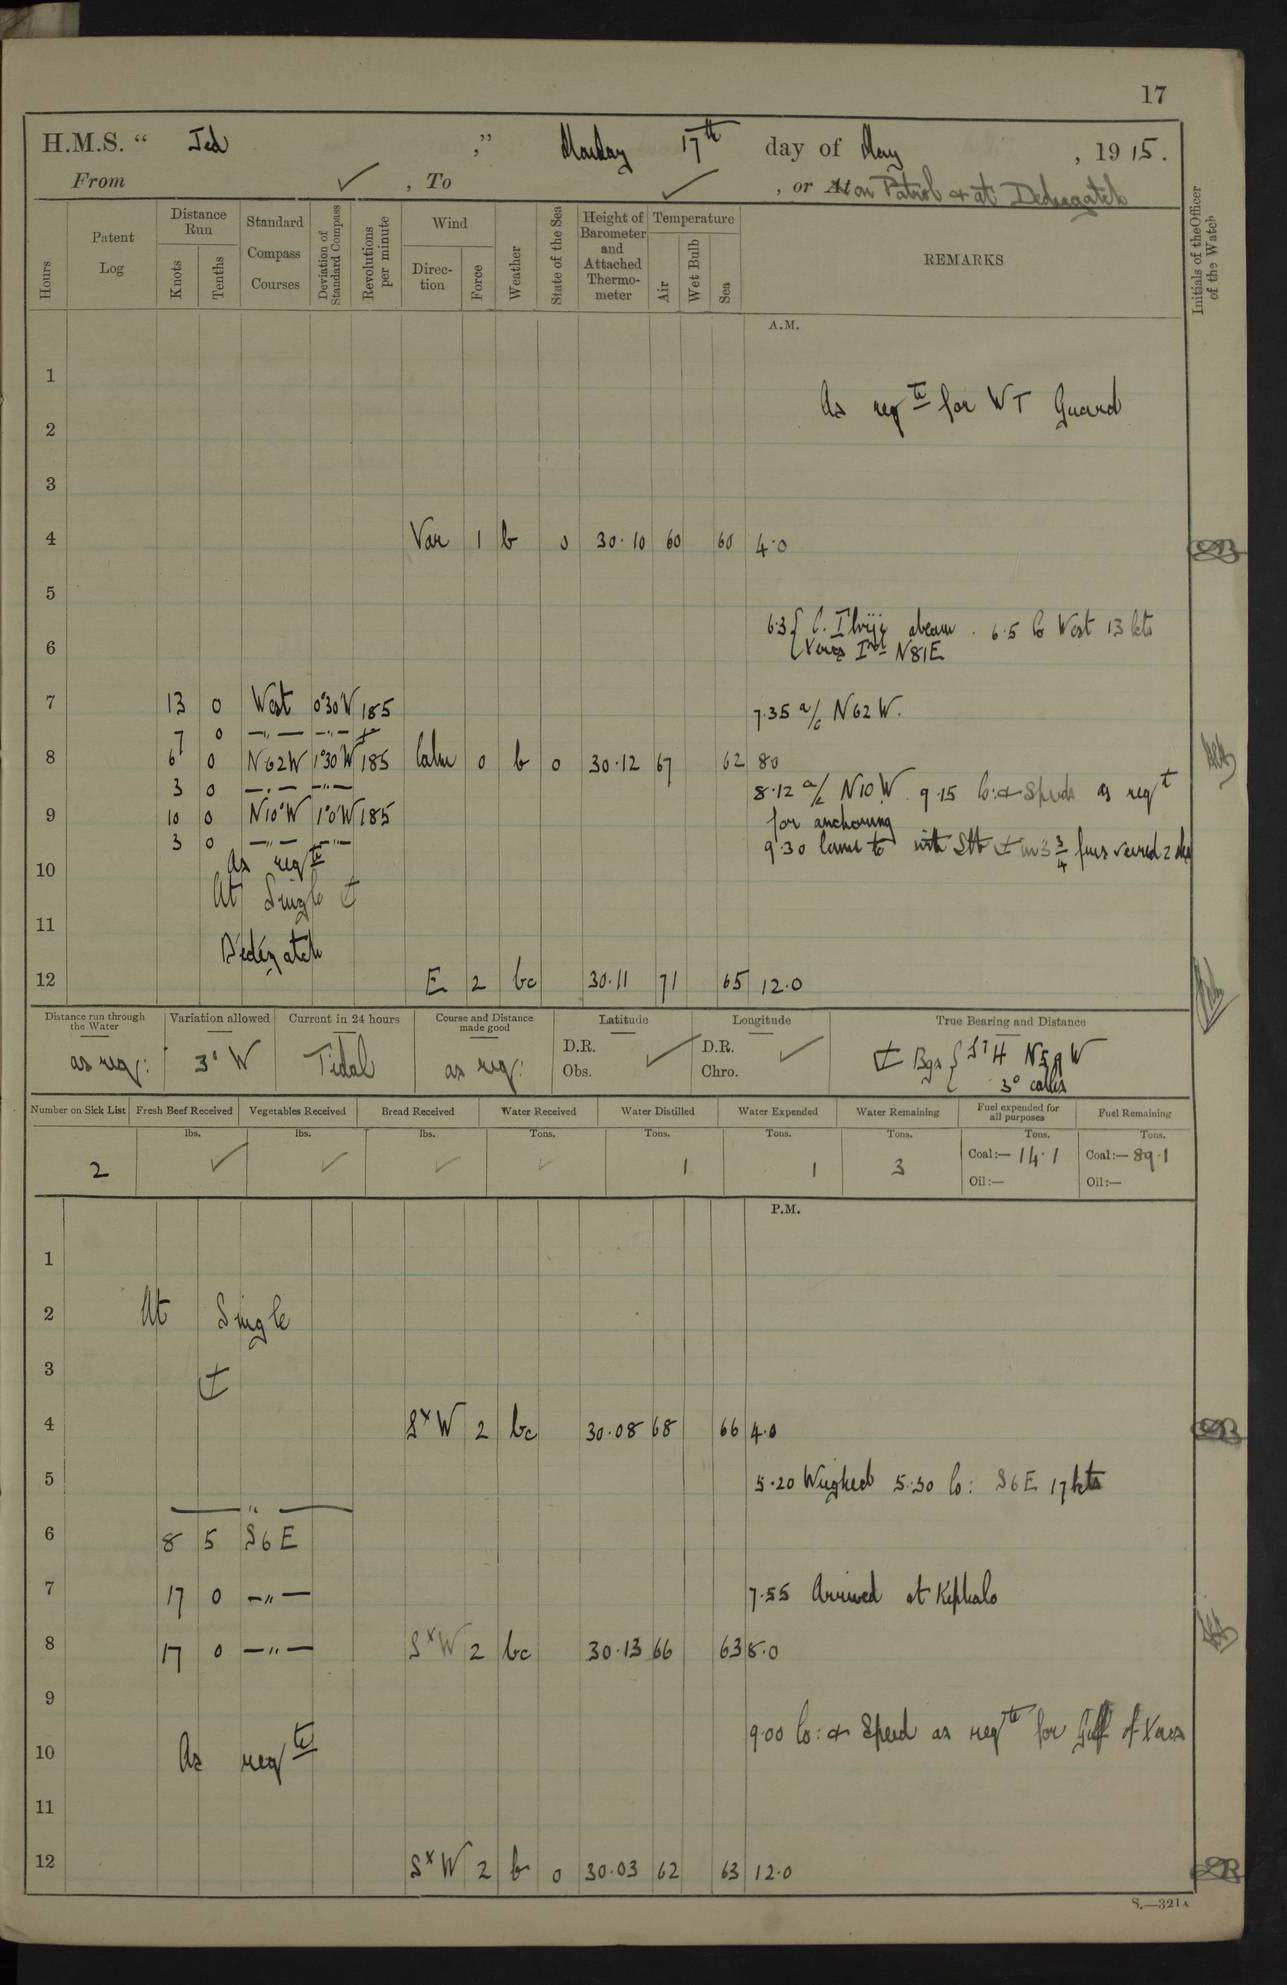 17
H.M.S. “ Jed ,” Monday 17th day of May , 1915.
From ✓ , To ✓ , or At on Patrol & at Dedeagatch
Hours
Patent Log
Distance Run
Knots
Tenths
Standard Compass Courses
Deviation of Standard Compass
Revolutions per minute
Wind
Direc- tion
Force
Weather
State of the Sea
Height of Barometer and Attached Thermo- meter
Temperature
Air
Wet Bulb
Sea
REMARKS
Initials of the Officer of the Watch
A.M.
1
As reqte for WT Guard
2
3
4 Var 1 b 0 30.10 60 60 4.0
5
6.3 { C. Ibriji abeam . 6.5 Co West 13 kts
6 { Xeros Isd N81E
7 13 0 West 0°30W 185 7.35 a/c N62W.
7 0 —„— —„—
8 6 0 N62W 1°30W 185 Calm 0 b 0 30.12 67 62 80
3 0 —„— —„— 8.12 a/c N10W. 9.15 Co: & Speeds as reqt
9 10 0 N10°W 1°0W 185 for anchoring
3 0 —„— —„— 9.30 Came to with Stb ⚓ in 3 3/4 fms veered 2 shs
As reqte
10
At Single ⚓
11
Dedégatch
12 E 2 bc 30.11 71 65 12.0
Distance run through the Water
Variation allowed
Current in 24 hours
Course and Distance made good
Latitude
Longitude
True Bearing and Distance
as req: 3° W Tidal as req: D.R. ✓ D.R. ✓ ⚓ Bgs {
Obs. Chro.
Number on Sick List
Fresh Beef Received
Vegetables Received
Bread Received
Water Received
Water Distilled
Water Expended
Water Remaining
Fuel expended for all purposes
Fuel Remaining
lbs. lbs. lbs. Tons. Tons. Tons. Tons. Tons. Tons.
2 ✓ ✓ ✓ ✓ 1 1 3 Coal:— 14.1 Coal:— 89.1
Oil:— Oil:—
P.M.
1
2 At Single
3 ⚓
4 SxW 2 bc 30.08 68 66 4.0
5 5.20 Weighed 5.30 Co: S6E 17 kts
—„—
6 8 5 S6E
7 17 0 —„— 7.55 Arrived at Kephalo
8 17 0 —„— SxW 2 bc 30.13 66 63 8.0
9
9.00 Co: & Speed as reqte for Gulf of Xeros
10 As reqte
11
12 SxW 2 b 0 30.03 62 63 12.0
S.—321A